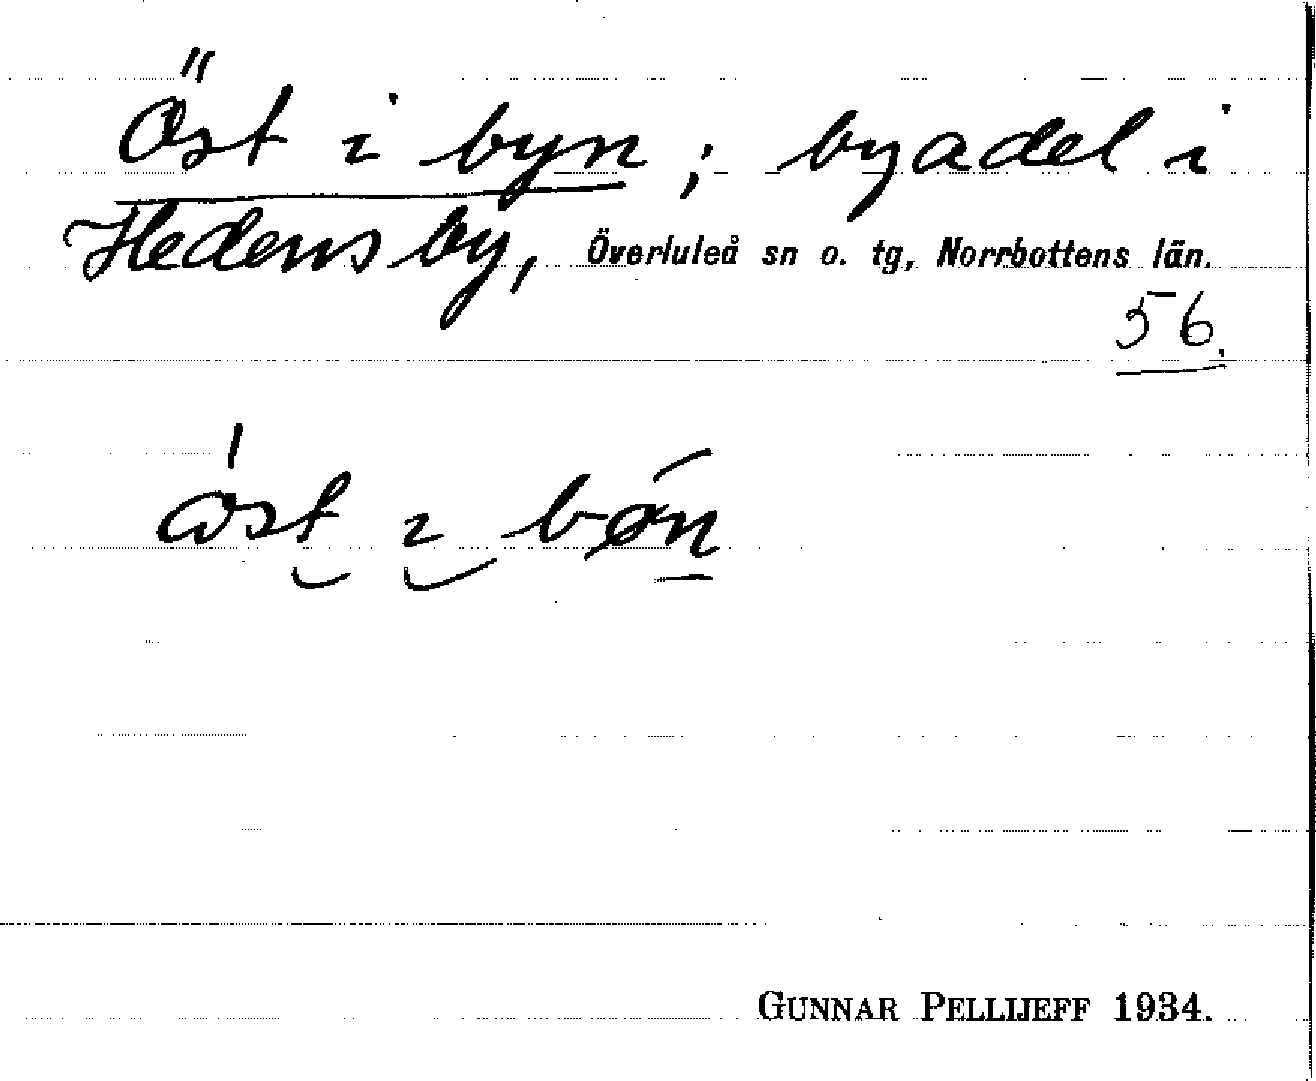 Öst i byn; byadel i
Hedensby, Överluleå sn o. tg, Norrbottens län.
56.
öst i bøn
GUNNAR PELLIJEFF 1934.